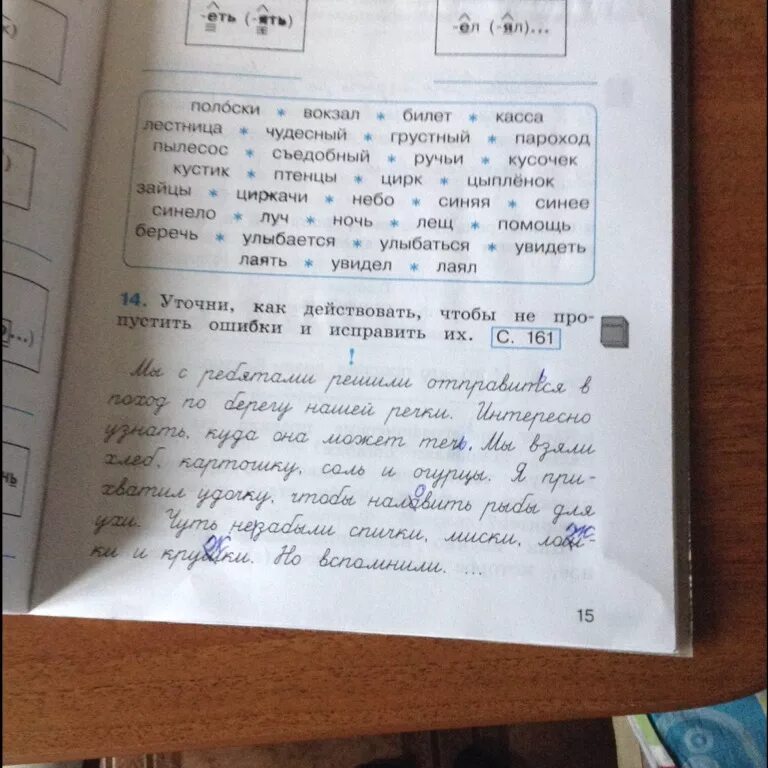 -еть (-ять)
-ел (-ял)...
полоски * вокзал * билет * касса
лестница * чудесный * грустный * пароход
пылесос * съедобный * ручьи * кусочек
кустик * птенцы * цирк * цыплёнок
зайцы * циркачи * небо * синяя * синее
синело * луч * ночь * лещ * помощь
беречь * улыбается * улыбаться * увидеть
лаять * увидел * лаял
14. Уточни, как действовать, чтобы не про-
пустить ошибки и исправить их. С. 161
!
Мы с ребятами решили отправится в
поход по берегу нашей речки. Интересно
узнать, куда она может течь. Мы взяли
хлеб, картошку, соль и огурцы. Я при-
хватил удочку, чтобы наловить рыбы для
ухи. Чуть незабыли спички, миски, лож-
ки и кружки. Но вспомнили. ...
15